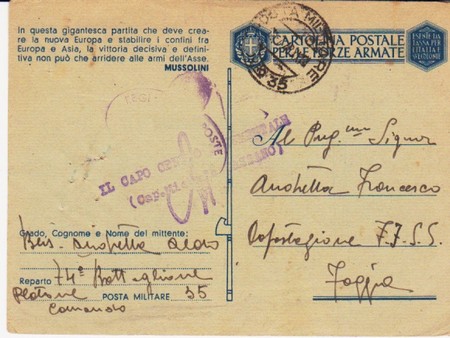 In questa gigantesca partita che deve crea-
re la nuova Europa e stabilire i confini fra
Europa e Asia, la vittoria decisiva e defini-
tiva non può che arridere alle armi dell'Asse.
MUSSOLINI
CARTOLINA POSTALE
PER LE FORZE ARMATE
ESENTE DA
TASSA PER
L'ITALIA E
35
IL CAPO
Al Preg.mo Signor
Anchetta Francesco
Capostazione FF.SS.
Foggia
Grado, Cognome e Nome del mittente:
Reparto 74° Battaglione
Plotone
Comando
POSTA MILITARE 35